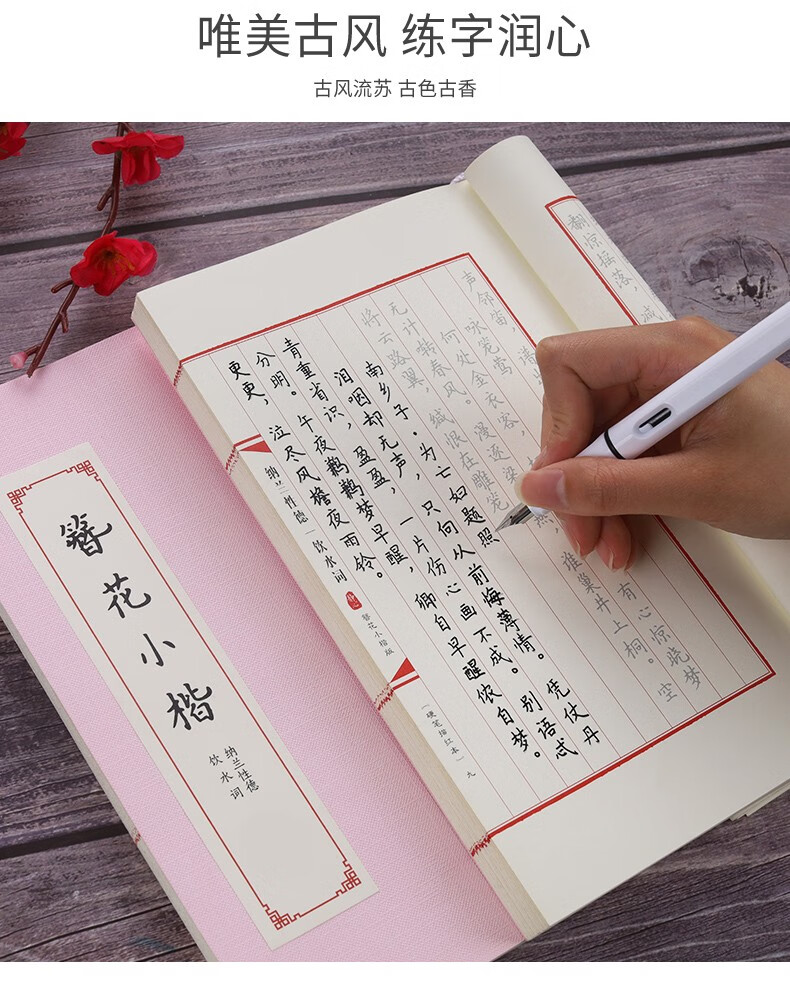 唯美古风 练字润心
古风流苏 古色古香
翻惊摇落，减
声邻笛，谱出
咏笼莺
何处金衣客，有心惊晓梦
无计啭春风。漫逐梁燕，谁巢井上桐。空
将云路翼，缄恨在雕笼
南乡子·为亡妇题照
泪咽却无声，只向从前悔薄情。凭仗丹
青重省识，盈盈，一片伤心画不成。别语忒
分明。午夜鹣鹣梦早醒，卿自早醒侬自梦。
更更，泣尽风檐夜雨铃。
纳兰性德｜饮水词
簪花小楷版
（硬笔描红本）九
簪花小楷
纳兰性德
饮水词